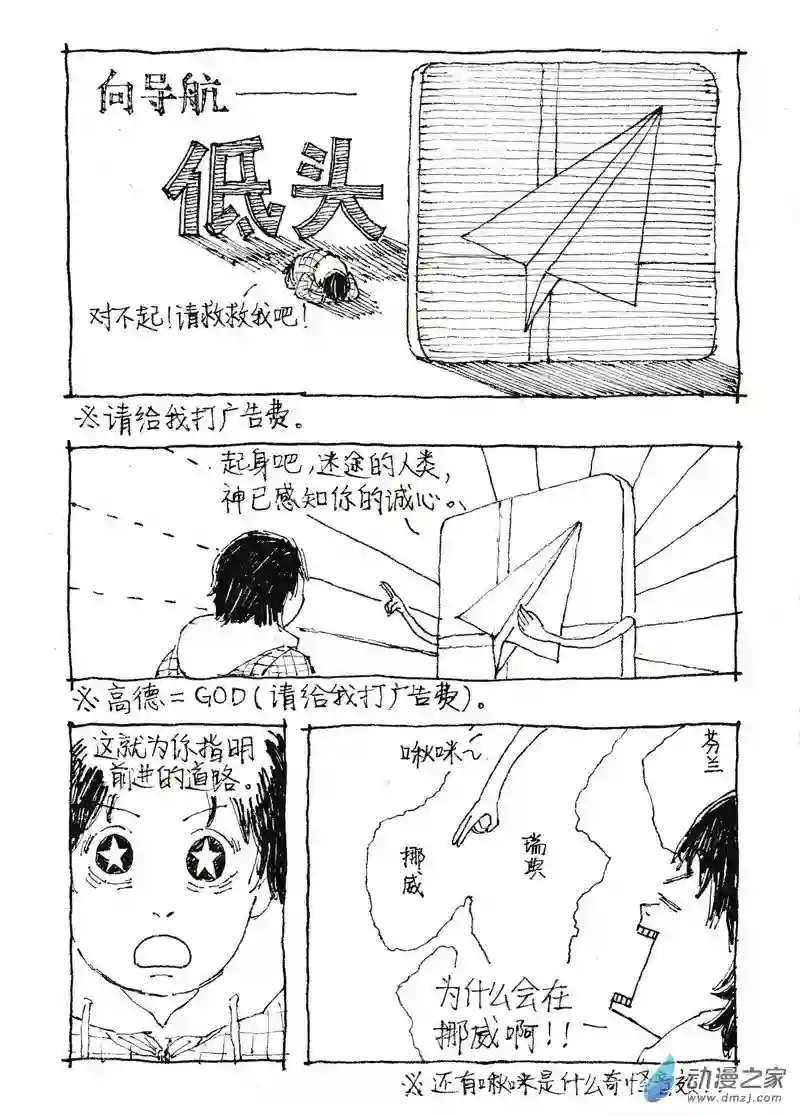 向导航——
低头
对不起！请救救我吧！
※请给我打广告费。
起身吧，迷途的人类，
神已感知你的诚心。
※高德＝GOD（请给我打广告费）。
这就为你指明
前进的道路。
啾咪～
芬兰
瑞典
挪威
为什么会在
挪威啊！！
※还有啾咪是什么奇怪音效！？
动漫之家
www.dmzj.com